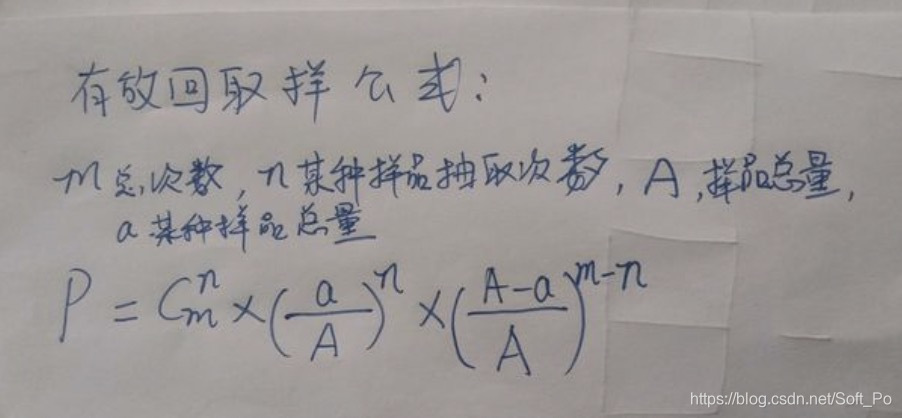 有放回取样公式:
m总次数,n某种样品抽取次数,A,样品总量,
a某种样品总量
P = C_m^n × (a/A)^n × ((A-a)/A)^{m-n}
https://blog.csdn.net/Soft_Po